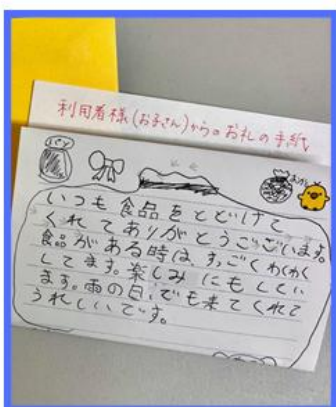 利用者様(お子さん)からのお礼の手紙
パン
おかし
いつも食品をとどけて
くれてありがとうございます。
食品がある時は、すっごくわくわく
してます。楽しみにもしてい
ます。雨の日でも来てくれて
うれしいです。